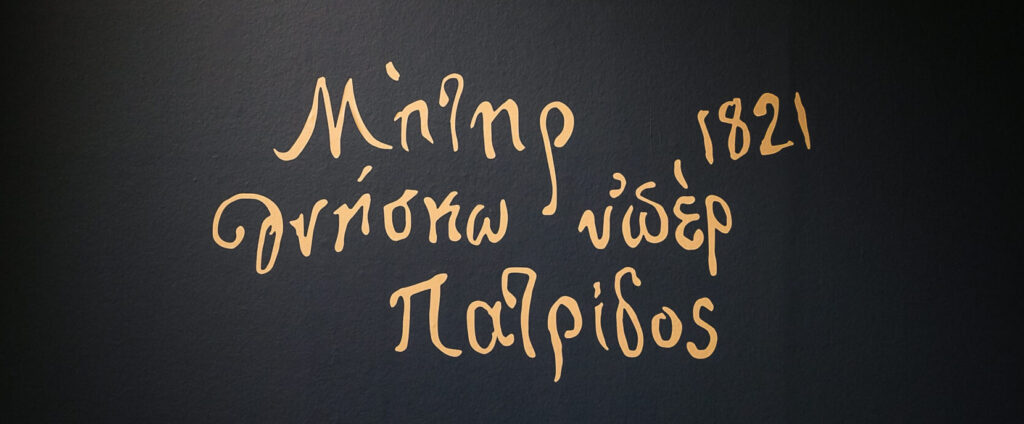 Μὴτηρ
θνήσκω ὑπὲρ
Πατρίδος
, 1821